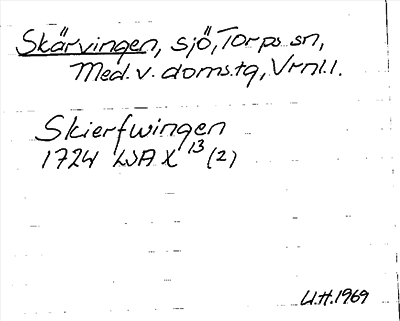 Skärvingen, sjö, Torps sn,
Med. v. doms.tg, Vrnl.l.
Skierfwingen
1724 LSA X 13 (2)
U.H. 1969